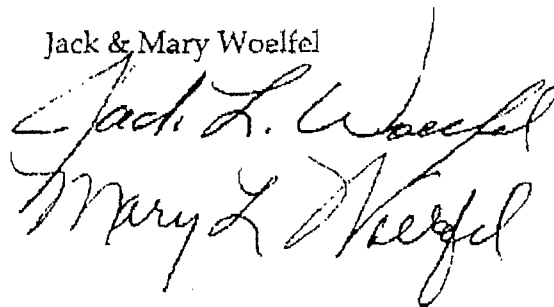 Jack & Mary Woelfel
Jack L. Woelfel
Mary L Woelfel